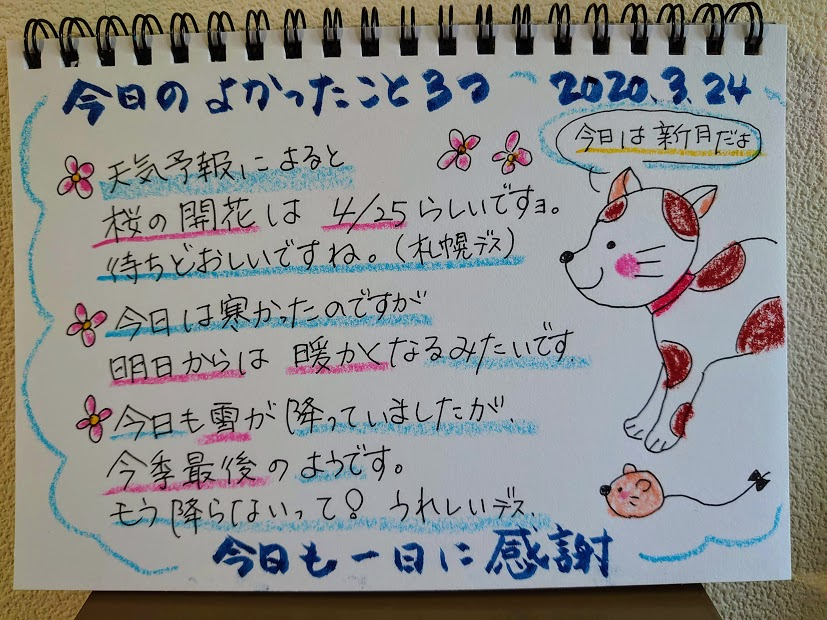 今日のよかったこと3つ 2020.3.24
今日は新月だよ
天気予報によると
桜の開花は 4/25らしいですョ。
待ちどおしいですね。(札幌デス)
今日は寒かったのですが
明日からは 暖かくなるみたいです
今日も雪が降っていましたが、
今季最後のようです。
もう降らないって! うれしいデス.
今日も一日に感謝